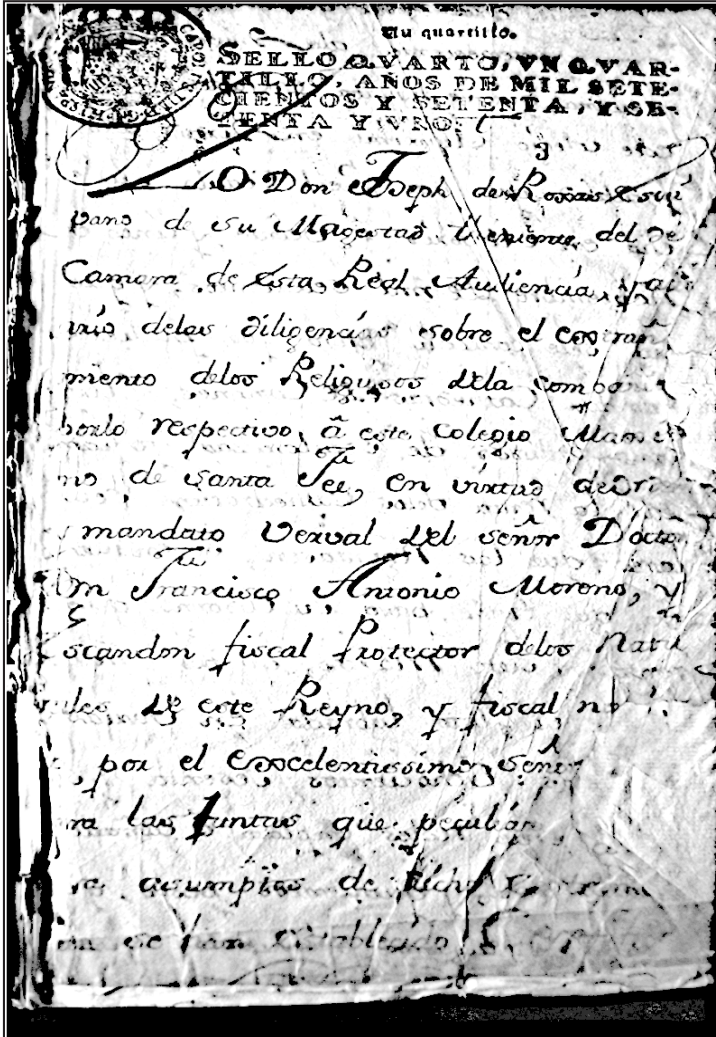 Un quartillo.
SELLO QVARTO, VN QVAR-
TILLO, AÑOS DE MIL SETE-
CIENTOS Y SETENTA, Y SE-
TENTA Y VNO.
3
YO Don Joseph de Roxas Escri
vano de su Magestad theniente del de
Camara de esta Real Audiencia, y
delas diligencias sobre el estraña
miento delos Religiosos dela Compañia
respectivo, â este Colegio Maximo
de Santa Fee, en virtud de
mandato Verval del señor Docto
Francisco Antonio Moreno, y
Escandon fiscal Protector delos Natu
rales de este Reyno, y fiscal
por el Exxcelentissimo señor
ra las Juntas que peculiar
asumptos de dicho
se han establecido